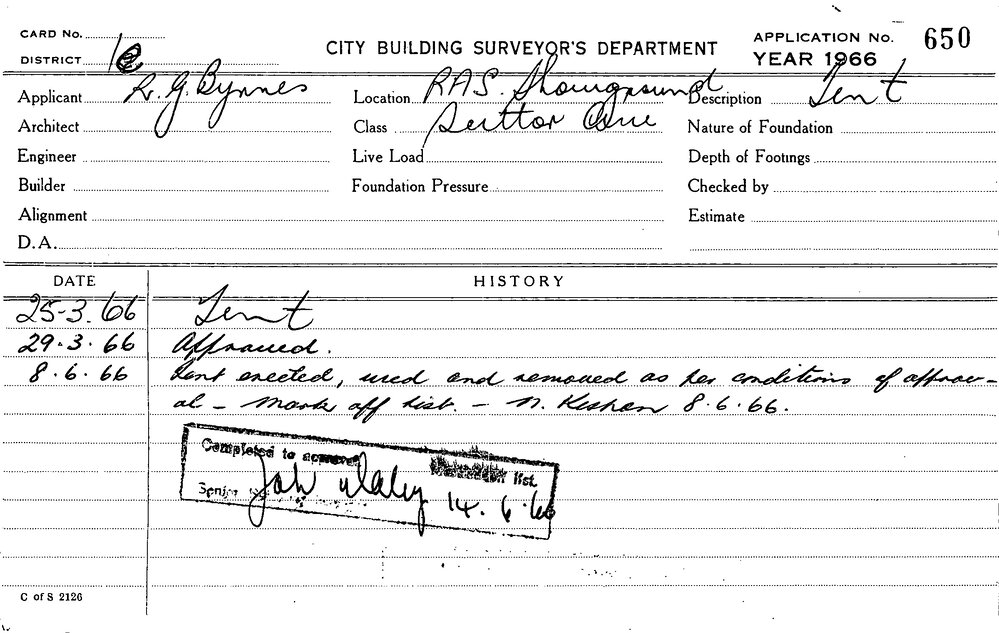 CARD No.
DISTRICT
CITY BUILDING SURVEYOR'S DEPARTMENT
APPLICATION No. 650
YEAR 1966
Applicant R. G. Byrnes
Location RAS. Showground
Description Tent
Architect
Class
Nature of Foundation
Engineer
Live Load
Depth of Footings
Builder
Foundation Pressure
Checked by
Alignment
Estimate
D.A.
DATE HISTORY
25-3.66 Tent
29.3.66 Approved.
8.6.66 Tent erected, used and removed as per conditions of approv-
al - Mark off list. - 8.6.66.
Completed to approval list.
Senior
14.6.66
C of S 2126